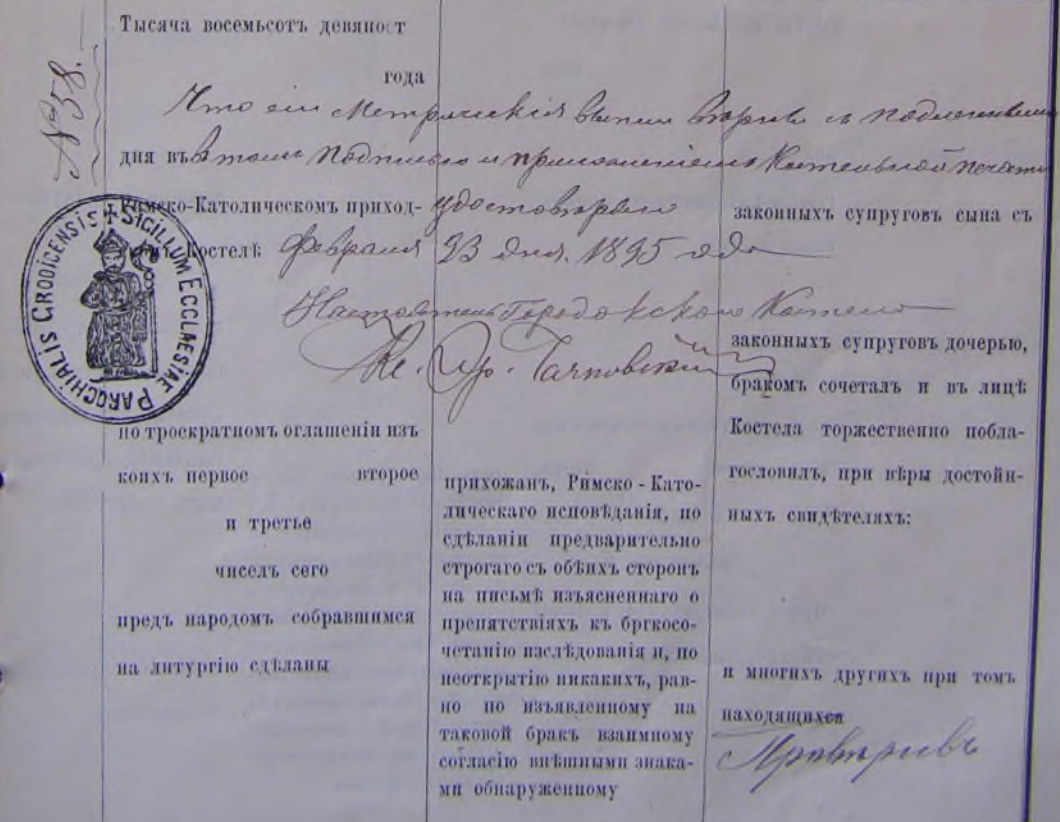 № 58.
Тысяча восемьсотъ девяност
года
Что сіи Метрическія выписи вѣрны съ подлинными
дня въ
въ томъ Подписью и приложеніемъ Костельной печати
Римско-Католическомъ приход-
удостовѣряю
Костелѣ
Февраля 23 дня. 1895 года
Настоятель Городокскаго Костела
Кс.
SIGILLUM ECCLAESIAE PAROCHIALIS GRODICENSIS
по троекратномъ оглашеніи изъ
коихъ первое второе
и третье
чиселъ сего
предъ народомъ собравшимся
на литургію сдѣланы
прихожанъ, Римско-Като-
лическаго исповѣданія, по
сдѣланіи предварительно
строгаго съ обѣихъ сторонъ
на письмѣ изъясненнаго о
препятствіяхъ къ бркосо-
четанію наслѣдованія и, по
неоткрытію никакихъ, рав-
но по изъявленному на
таковой бракъ взаимному
согласію внѣшними знака-
ми обнаруженному
законныхъ супруговъ сына съ
законныхъ супруговъ дочерью,
бракомъ сочеталъ и въ лицѣ
Костела торжественно побла-
гословилъ, при вѣры достой-
ныхъ свидѣтеляхъ:
и многихъ другихъ при томъ
находящихся